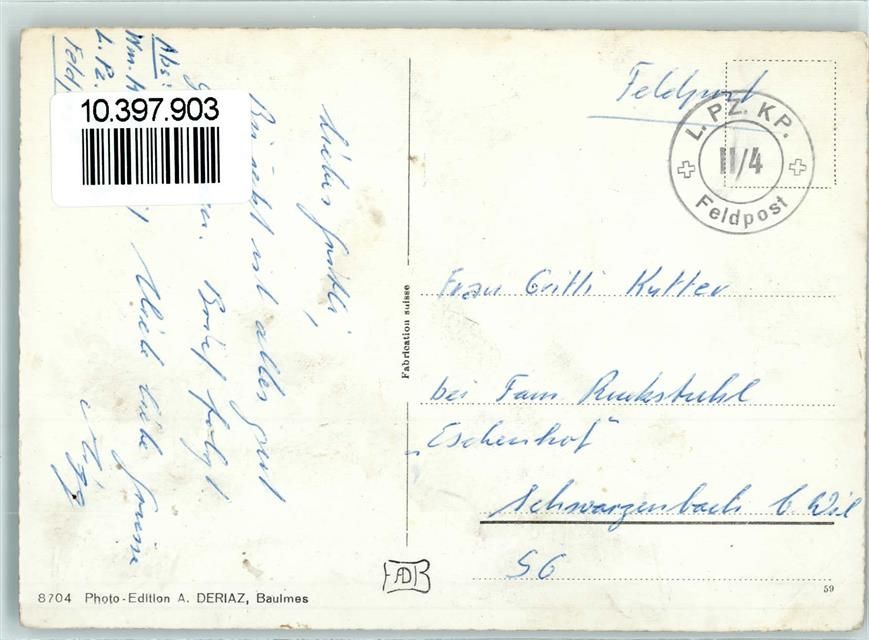 Abs:
Wm.
L. Pz.
Feldp
10.397.903
Liebes Gritli,
Bis jetzt ist alles gut
Brief folgt
Viele liebe Grüsse
Feldpost
L. PZ. KP.
II/4
Feldpost
Frau Gritli Kutter
bei Fam Ruckstuhl
„Eschenhof"
Schwarzenbach b Wil
SG
Fabrication suisse
8704 Photo-Edition A. DERIAZ, Baulmes
59